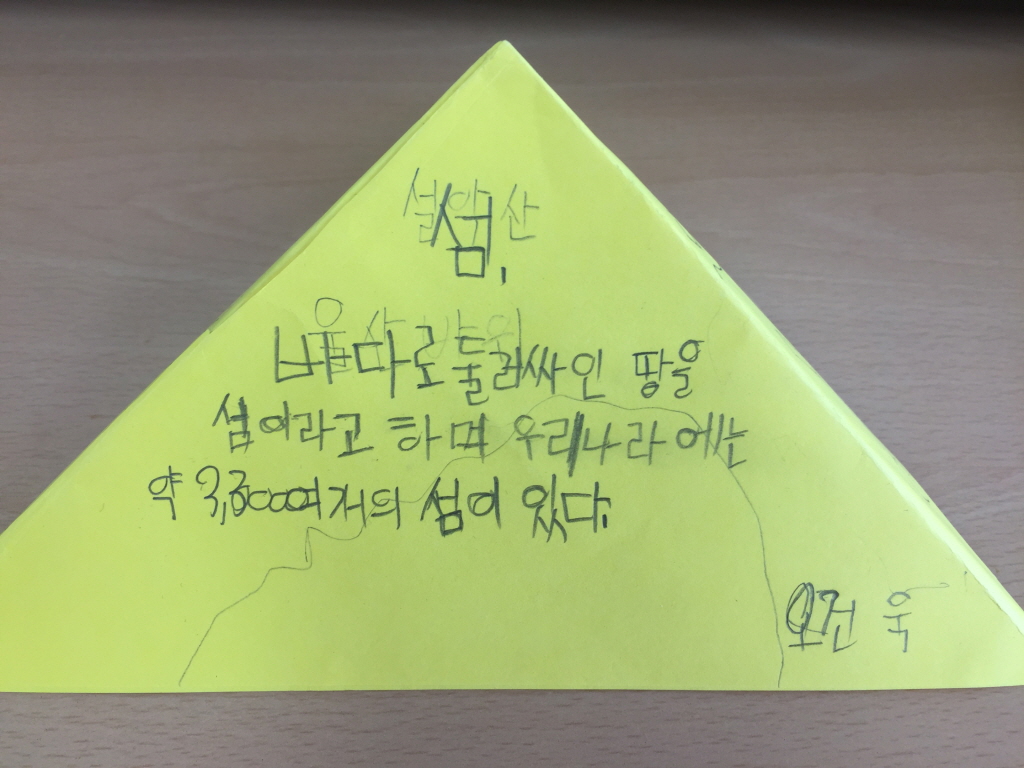 설악산
섬,
울산바위
바다로 둘러싸인 땅을
섬이라고 하며 우리나라에는
약 3,3000여개의 섬이 있다.
오건욱